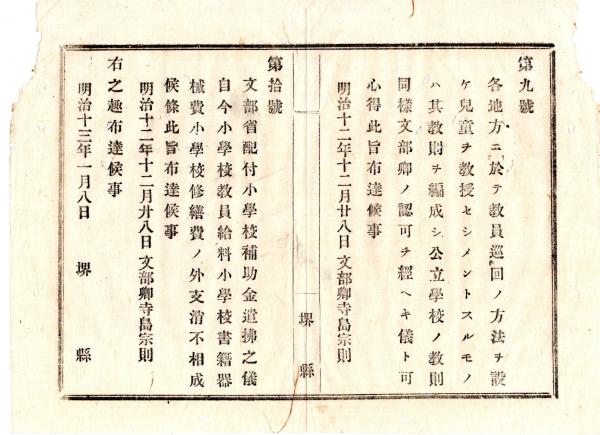 第九號
各地方ニ於テ敎員巡回ノ方法ヲ設
ケ兒童ヲ敎授セシメントスルモノ
ハ其敎則ヲ編成シ公立學校ノ敎則
同樣文部卿ノ認可ヲ經ヘキ儀ト可
心得此旨布達候事
明治十二年十二月廿八日文部卿寺島宗則
堺縣
第拾號
文部省配付小學校補助金遣拂之儀
自今小學校敎員給料小學校書籍器
械費小學校修繕費ノ外支消不相成
候條此旨布達候事
明治十二年十二月廿八日文部卿寺島宗則
右之趣布達候事
明治十三年一月八日 堺縣